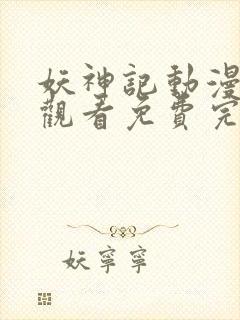 妖神記動漫
觀看免費完
妖寧寧